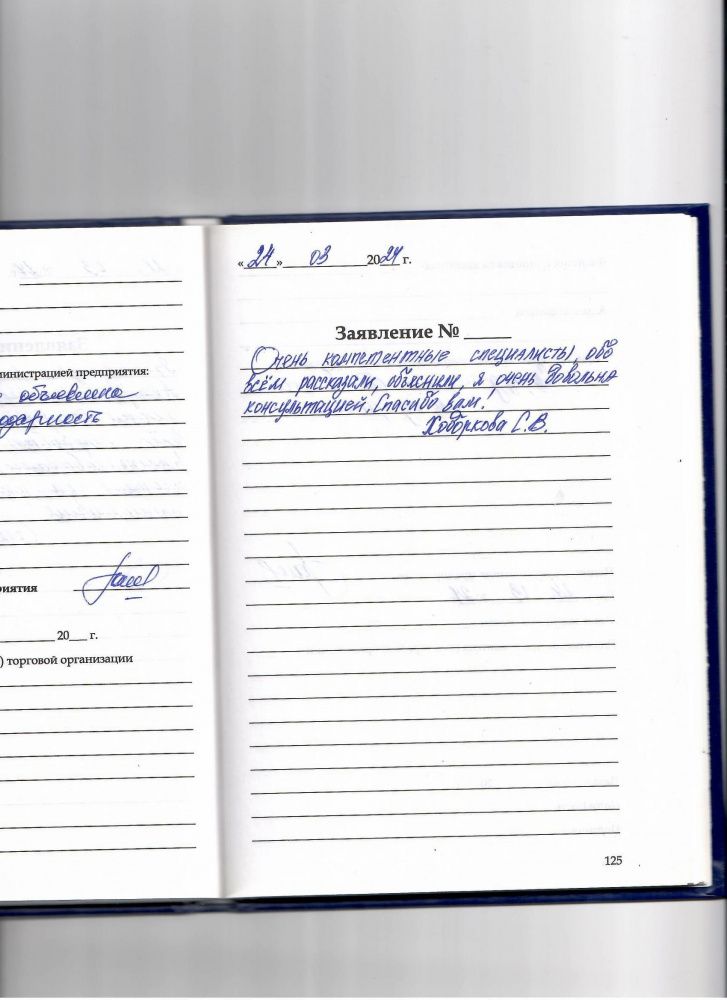 министрацией предприятия:
объявлена
одарность
риятия
20___ г.
) торговой организации
« 24 » 03 2024 г.
Заявление № ____
Очень компетентные специалисты, обо
всём рассказали, объяснили, я очень довольна
консультацией. Спасибо вам!
Ходоркова С.В.
125